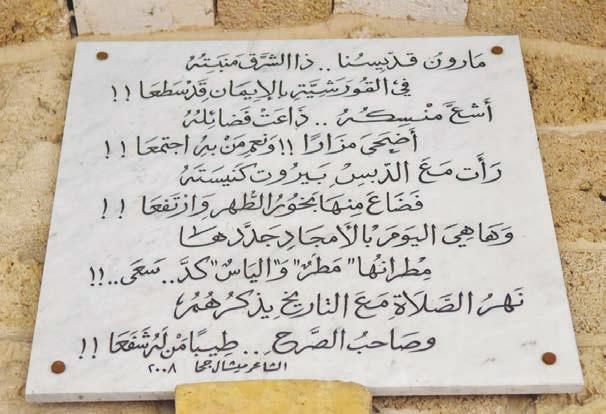 مَارُونُ قدّيسُنا .. ذا الشّرقُ مَنبَتُهُ
في القورَشيّةِ بالإيمَانِ قدْ سَطعَا !!
أشعَّ مَنْسِكُهُ .. ذَاعَتْ فَضَائِلُهُ
أضحَى مَزَارًا !! وَنِعمَ مَنْ بهِ اجتمَعَا !!
رَأت مَعَ الدّبسِ بَيروت كَنيستَهُ
فَضَاعَ مِنهَا بخورُ الطُّهرِ وَارتفعَا !!
وَهَا هِيَ اليَومَ بالأمجَادِ جَدَّدهَا
مِطرانُها "مَطرٌ" وَ"اليَاسُ" كدَّ .. سَعَى ..!!
نَهرُ الصَّلاةِ مَعَ التاريخِ يذكرُهُمُ
وَصَاحبُ الصَّرحِ ... طِيبًا مَنْ لَهُ شَفَعَا !!
الشاعر ميشال جحا ٢٠٠٨